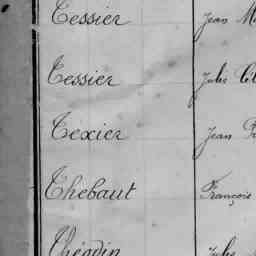 Tessier Jean M
Tessier Jules Cl
Texier Jean P
Thebaut François
Théodin Jules